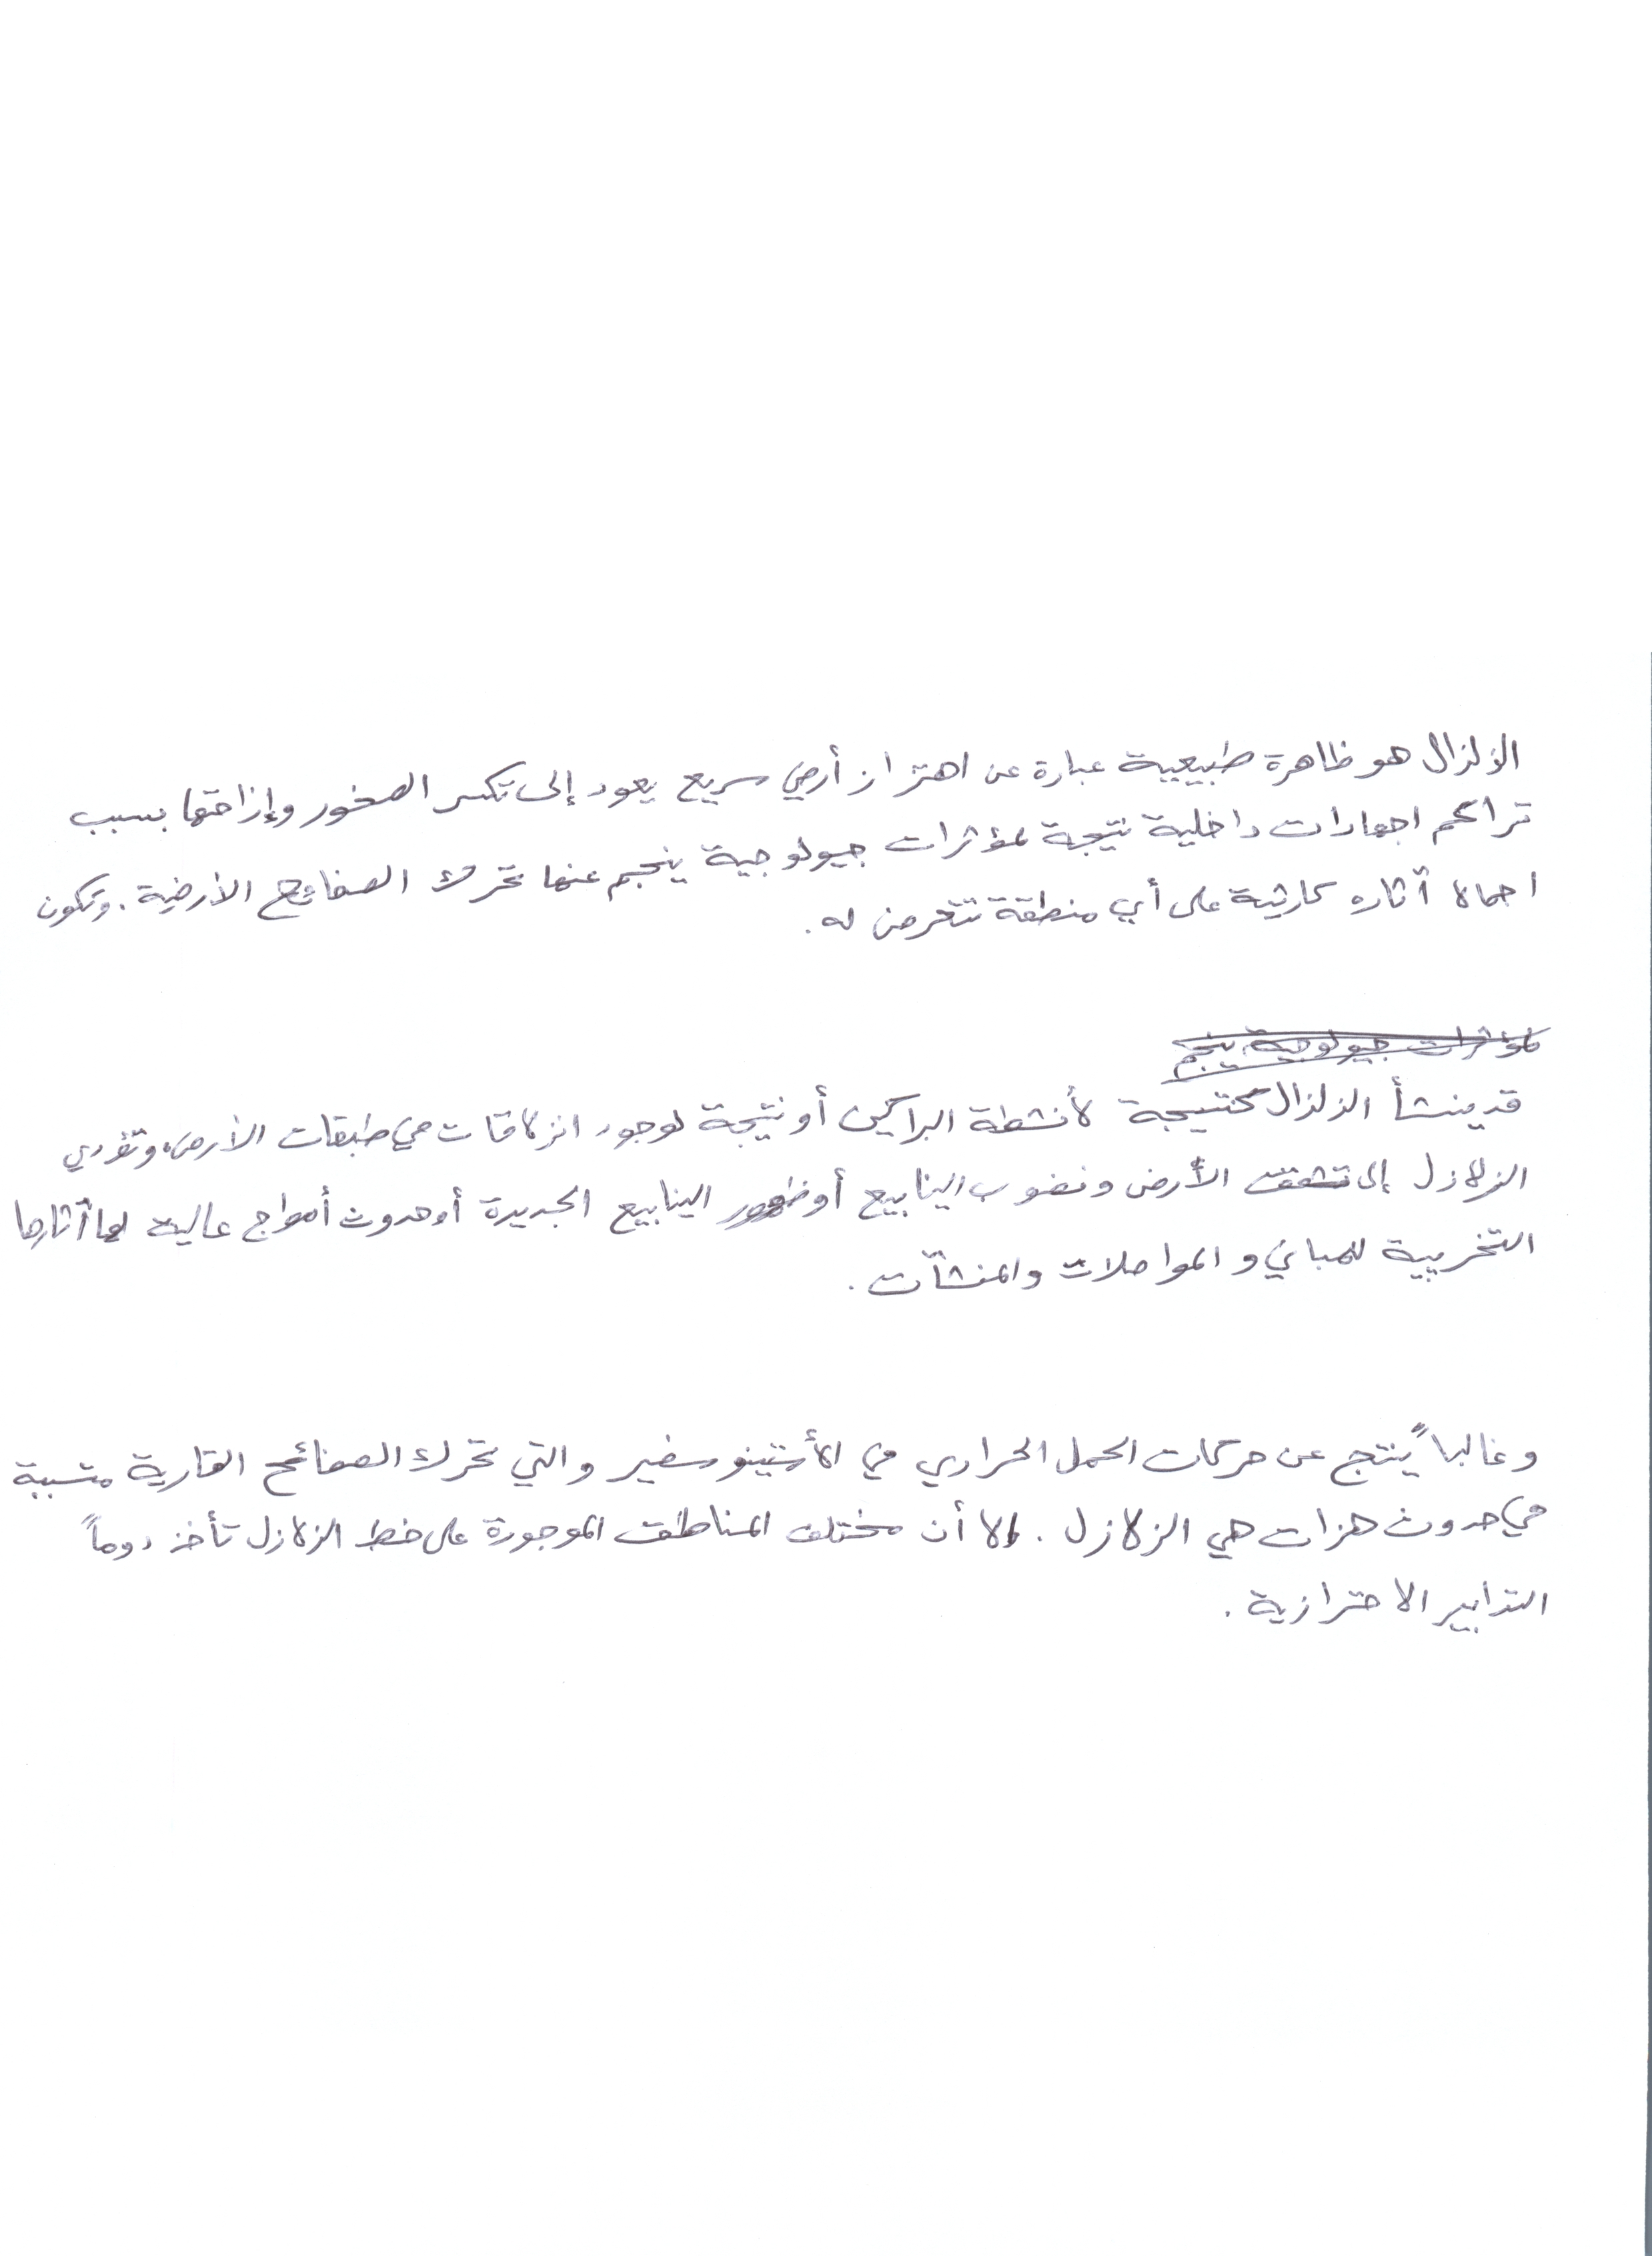 الزلزال هو ظاهرة طبيعية عبارة عن اهتزاز أرضي سريع يعود إلى تكسر الصخور وإزاحتها بسبب
تراكم اجهادات داخلية نتيجة لمؤثرات جيولوجية ينجم عنها تحرك الصفائح الأرضية. وتكون
اجمالا آثاره كارثية على أي منطقة تتعرض له.
لمؤثرات جيولوجية ينجم
قد ينشأ الزلزال كنتيجة لأنشطة البراكين أو نتيجة لوجود انزلاقات في طبقات الأرض، وتؤدي
الزلازل إلى تشقق الأرض ونضوب الينابيع أو ظهور الينابيع الجديدة أو حدوث أمواج عالية لها آثارها
التخريبية للمباني والمواصلات والمنشآت.
وغالباً ينتج عن حركات الحمل الحراري في الأستينوسفير والتي تحرك الصفائح القارية متسببة
في حدوث هزات هي الزلازل. الا أن مختلف المناطق الموجودة على خط الزلازل تأخذ دوماً
التدابير الاحترازية.